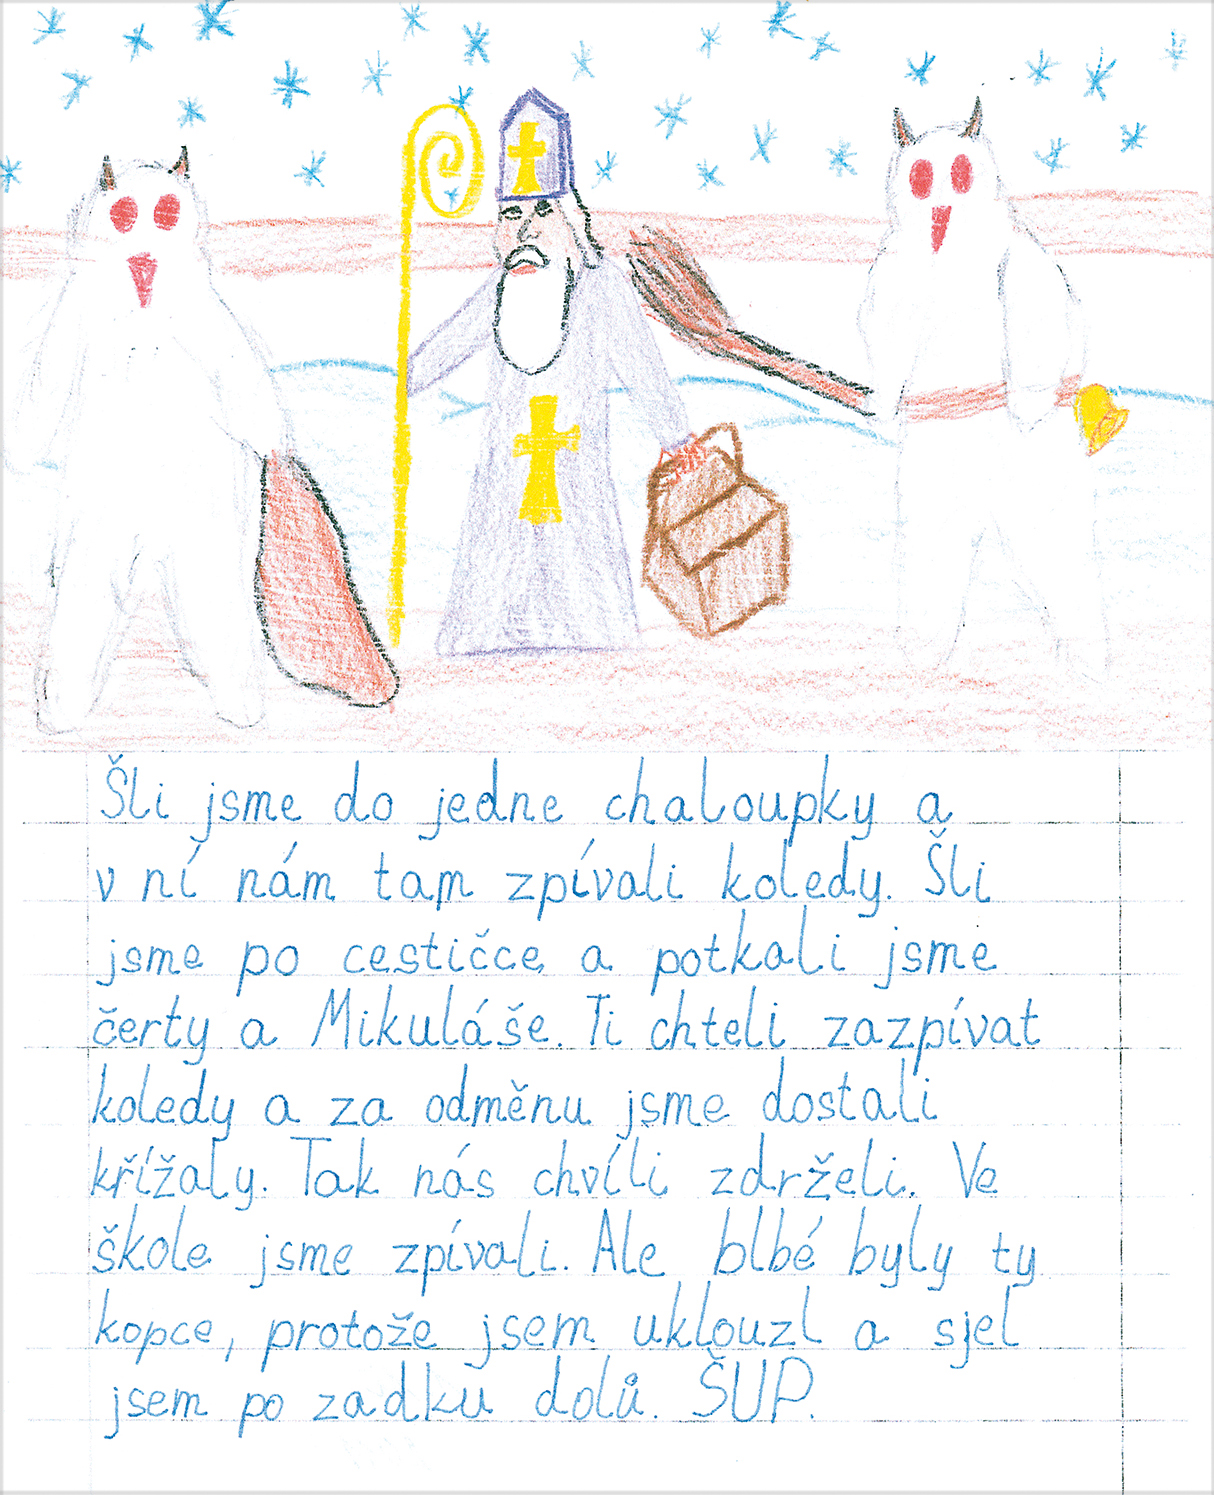 Šli jsme do jedne chaloupky a
v ní nám tam zpívali koledy. Šli
jsme po cestičce a potkali jsme
čerty a Mikuláše. Ti chteli zazpívat
koledy a za odměnu jsme dostali
křížaly. Tak nás chvíli zdrželi. Ve
škole jsme zpívali. Ale blbé byly ty
kopce, protože jsem uklouzl a sjel
jsem po zadku dolů. ŠUP.